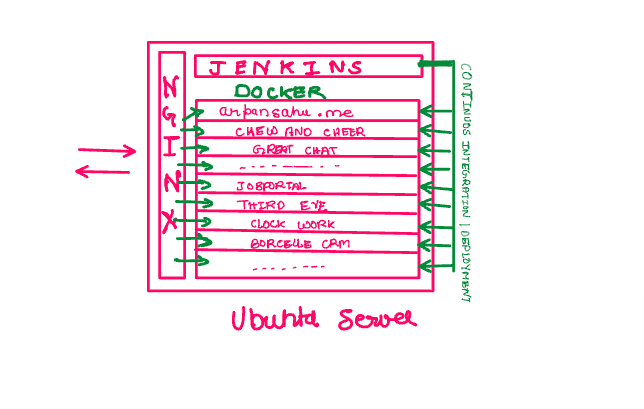 JENKINS
DOCKER
NGINX
arpansahu.me
CHEW AND CHEER
GREAT CHAT
JOBPORTAL
THIRD EYE
CLOCK WORK
BORCELLE CRM
CONTINUOS INTEGRATION | DEPLOYMENT
Ubuntu Server